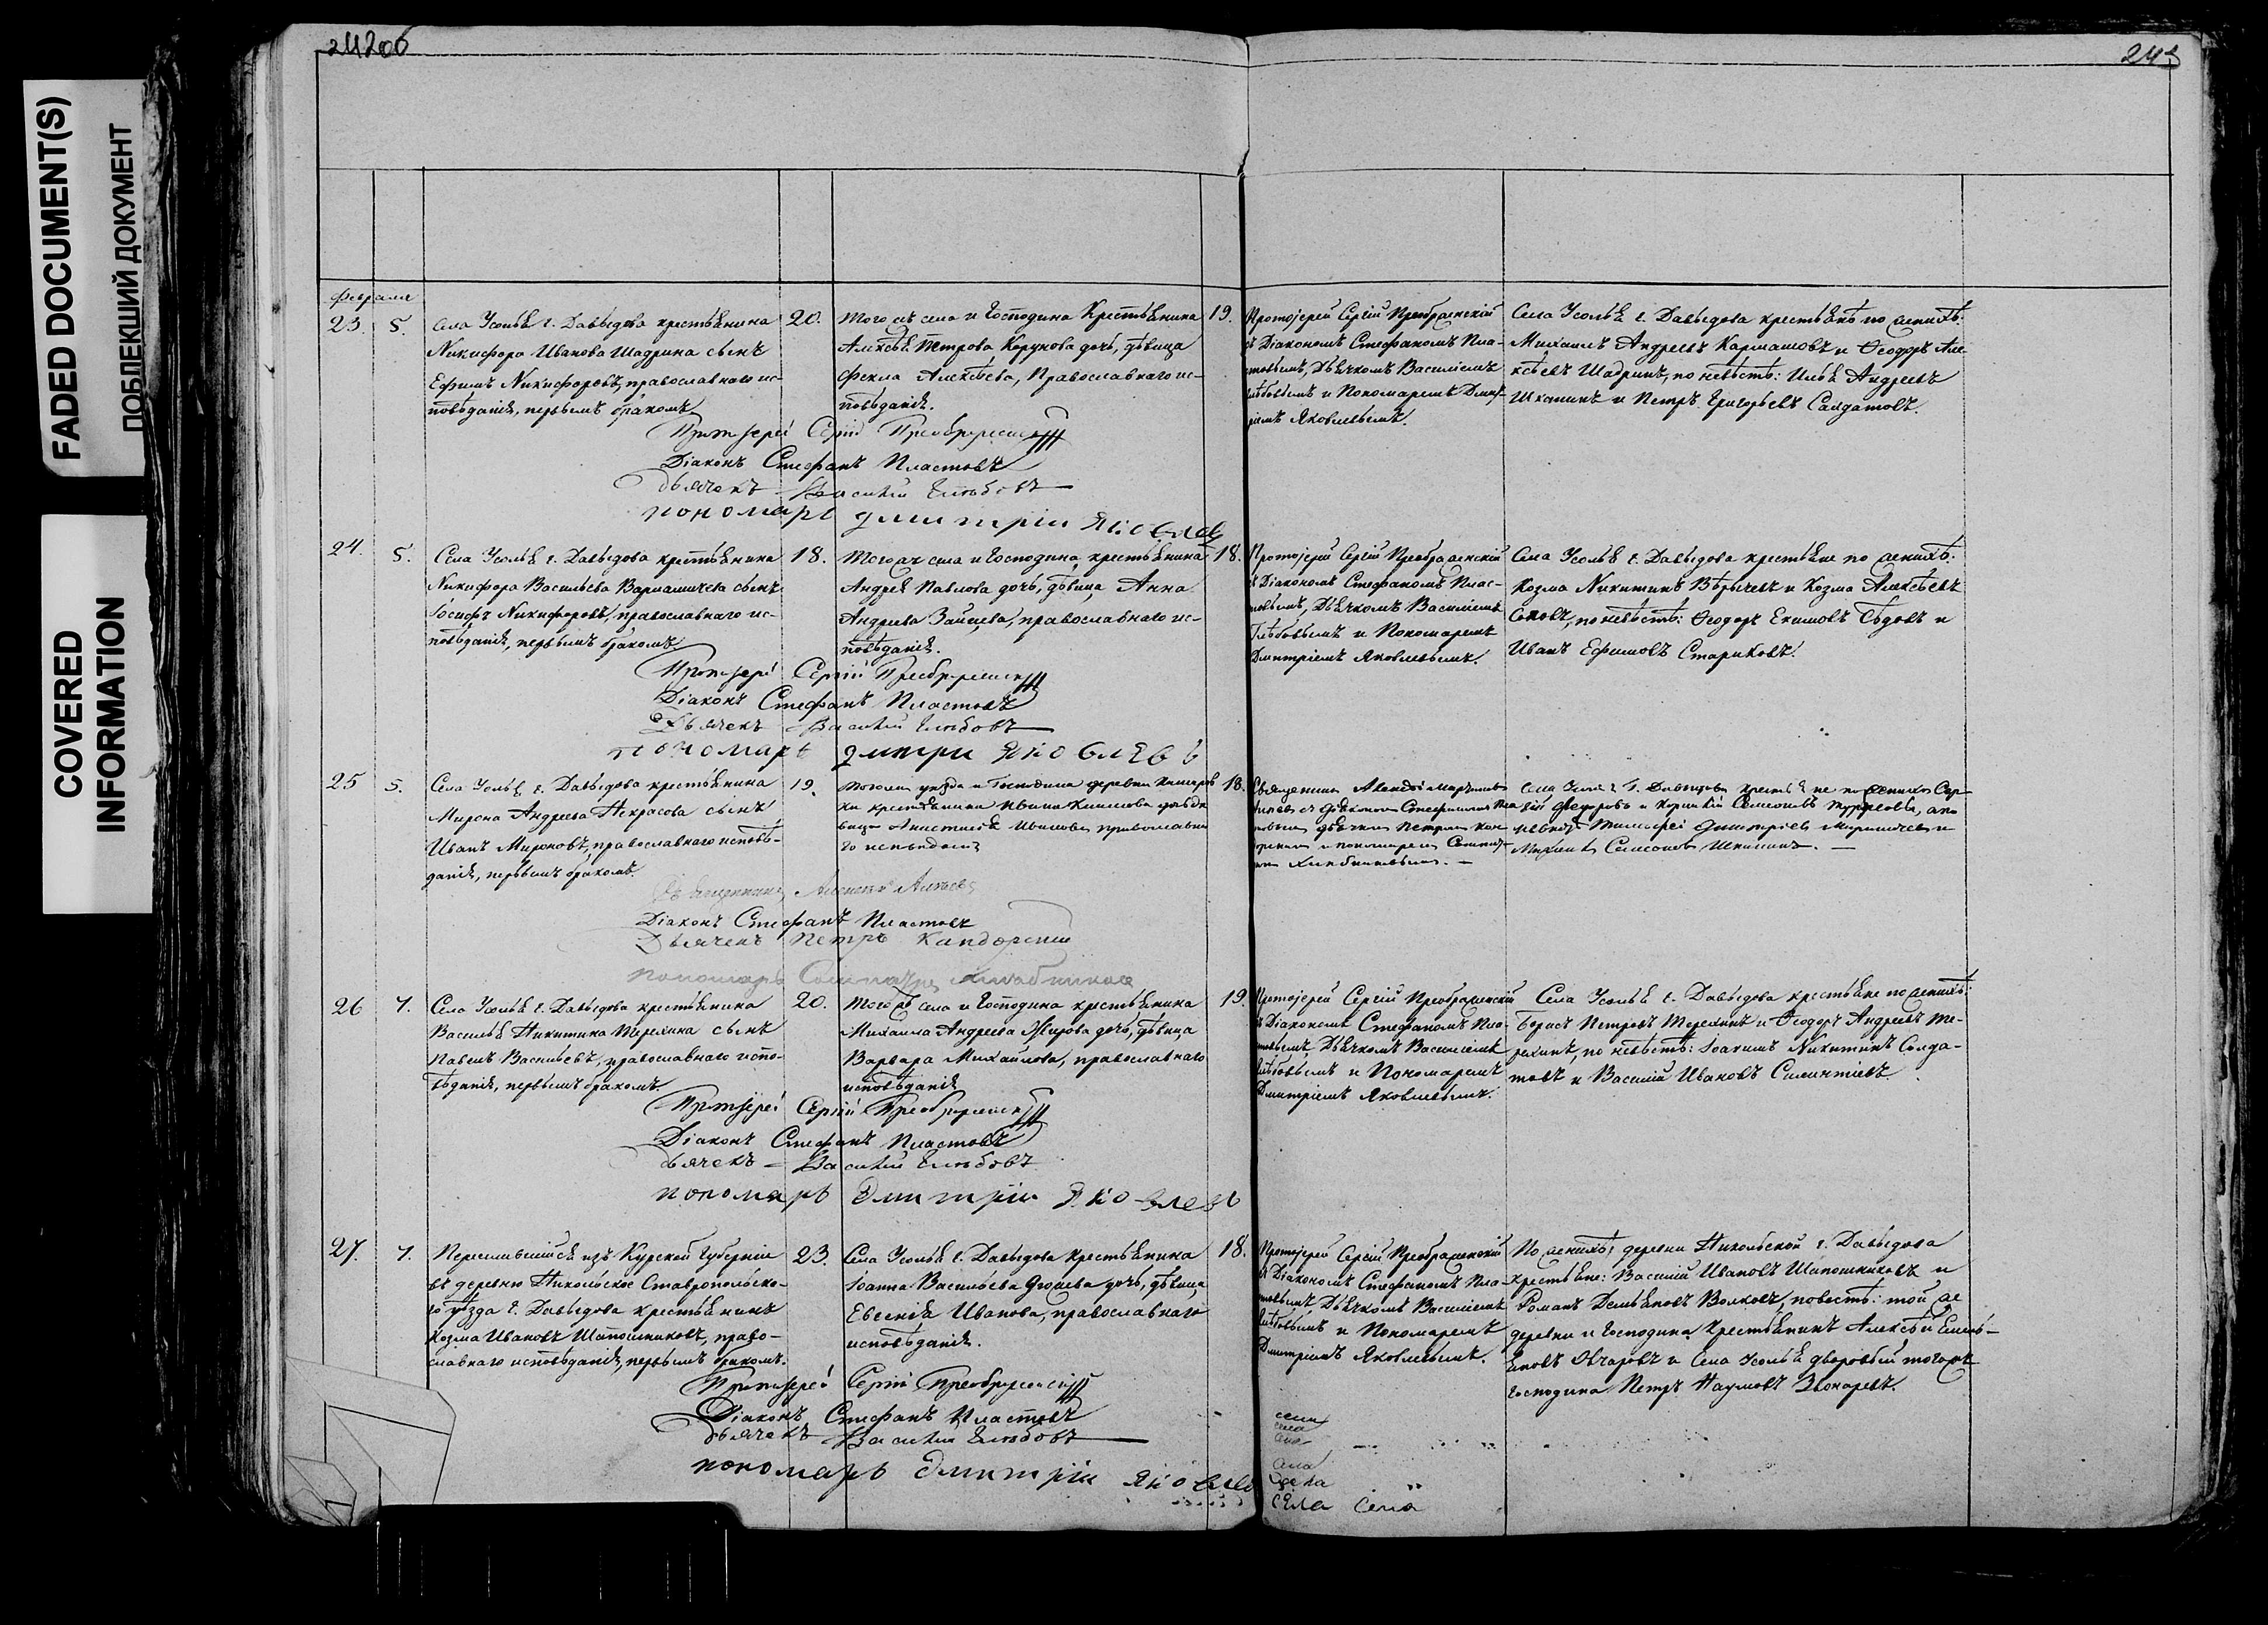 FADED DOCUMENT(S)
ПОБЛЕКШИЙ ДОКУМЕНТ
COVERED
INFORMATION
242об
243
Февраля
23. 5. Села Усолья г. Давыдова крестьянина
Никифора Иванова Шадрина сынъ
Ефимъ Никифоровъ, православнаго ис-
повѣданія, первымъ бракомъ.
20.
Того жъ села и Господина Крестьянина
Алексѣя Петрова дочь, дѣвица
Фекла Алексѣева, Православнаго ис-
повѣданія.
19.
Протоіерей Сергій Преображенскій
съ Діакономъ Стефаномъ Пла-
стовымъ, Дьячкомъ Василіемъ
Глѣбовымъ и Пономаремъ Дмит-
ріемъ Яковлевымъ.
Села Усолья г. Давыдова крестьянѣ по женихѣ:
Михаилъ Андреевъ и Ѳеодоръ Але-
ксѣевъ Шадринъ, по невѣстѣ: Илья Андреевъ
Шканинъ и Петръ Григорьевъ Салдатовъ.
Протоіерей Сергій Преображенскій
Діаконъ Стефанъ Пластовъ
Дьячекъ Василій Глѣбовъ
пономарь дмитріи Яковлев
24. 5. Села Усолья г. Давыдова крестьянина
Никифора Васильева сынъ
Іосифъ Никифоровъ, православнаго ис-
повѣданія, первымъ бракомъ.
18.
Того жъ села и Господина, крестьянина
Андрея Павлова дочь, дѣвица Анна
Андреева Зайцева, православнаго ис-
повѣданія.
18.
Протоіерей Сергій Преображенскій
съ Діакономъ Стефаномъ Плас-
товымъ, Дьячкомъ Василіемъ
Глѣбовымъ и Пономаремъ
Дмитріемъ Яковлевымъ.
Села Усолья г. Давыдова крестьяне по женихѣ:
Козма Никитинъ и Козма Алексѣевъ
по невѣстѣ: Ѳеодоръ Екимовъ Сѣдовъ и
Иванъ Ефимовъ Стариковъ.
Протоіерей Сергій Преображенскій
Діаконъ Стефанъ Пластовъ
Дьячекъ Василій Глѣбовъ
пономарь дмитри Яковлевь
25 5. Села Усолья г. Давыдова крестьянина
Мирона Андреева Некрасова сынъ
Иванъ Мироновъ, православнаго исповѣ-
данія, первымъ бракомъ.
19.
уѣзда и Господина деревни
крестьянина Ивана дочь дѣ
вица Анастасія Иванова православна
го исповѣданія
18.
Священникъ Алексій
съ діакономъ Стефаномъ
дьячкомъ Петромъ
и пономаремъ
Села Усолья Г. Давыдова крестьяне по женихѣ
Ѳедоровъ и Семеновъ
Тимофей Дмитріевъ и
Семеновъ
Священникъ Алексій
Діаконъ Стефанъ Пластовъ
Дьячекъ Петръ Кандорский
пономарь
26 7. Села Усолья г. Давыдова крестьянина
Василья Никитина Терехина сынъ
Павелъ Васильевъ, православнаго испо-
вѣданія, первымъ бракомъ.
20.
Того жъ села и Господина крестьянина
Михаила Андреева дочь, дѣвица,
Варвара Михайлова, православнаго
исповѣданія
19.
Протоіерей Сергій Преображенскій
съ Діакономъ Стефаномъ Пла-
стовымъ, Дьячкомъ Василіемъ
Глѣбовымъ и Пономаремъ
Дмитріемъ Яковлевымъ.
Села Усолья г. Давыдова крестьяне по женихѣ:
Борисъ Петровъ Терехинъ и Ѳеодоръ Андреевъ Те-
рехинъ, по невѣстѣ: Іоакимъ Никитинъ Салда-
товъ и Василій Ивановъ
Протоіерей Сергій Преображенскій
Діаконъ Стефанъ Пластовъ
Дьячекъ Василій Глѣбовъ
пономарь Дмитріи Яковлевь
27. 7. Переселившийся изъ Курской Губерніи
въ деревню Никольское Ставропольска-
го уѣзда г. Давыдова крестьянинъ
Козма Ивановъ Шапошниковъ, право-
славнаго исповѣданія, первымъ бракомъ.
23.
Села Усолья г. Давыдова Крестьянина
Іоанна Васильева дочь, дѣвица,
Евгенія Иванова, православнаго
исповѣданія.
18.
Протоіерей Сергій Преображенскій
съ Діакономъ Стефаномъ Пла-
стовымъ, Дьячкомъ Василіемъ
Глѣбовымъ и Пономаремъ
Дмитріемъ Яковлевымъ.
По женихѣ: деревни Никольской г. Давыдова
крестьяне: Василій Ивановъ Шапошниковъ и
Романъ Демьяновъ Волковъ, по невестѣ: той же
деревни и Господина Крестьянинъ Алексѣй Емель-
яновъ Овчаровъ и Села Усолья дворовый того жъ
господина Петръ Наумовъ Звонаревъ.
Протоіерей Сергій Преображенскій
Діаконъ Стефанъ Пластовъ
Дьячекъ Василій Глѣбовъ
пономарь Дмитріи Яковлев
села
села
села
Села Села